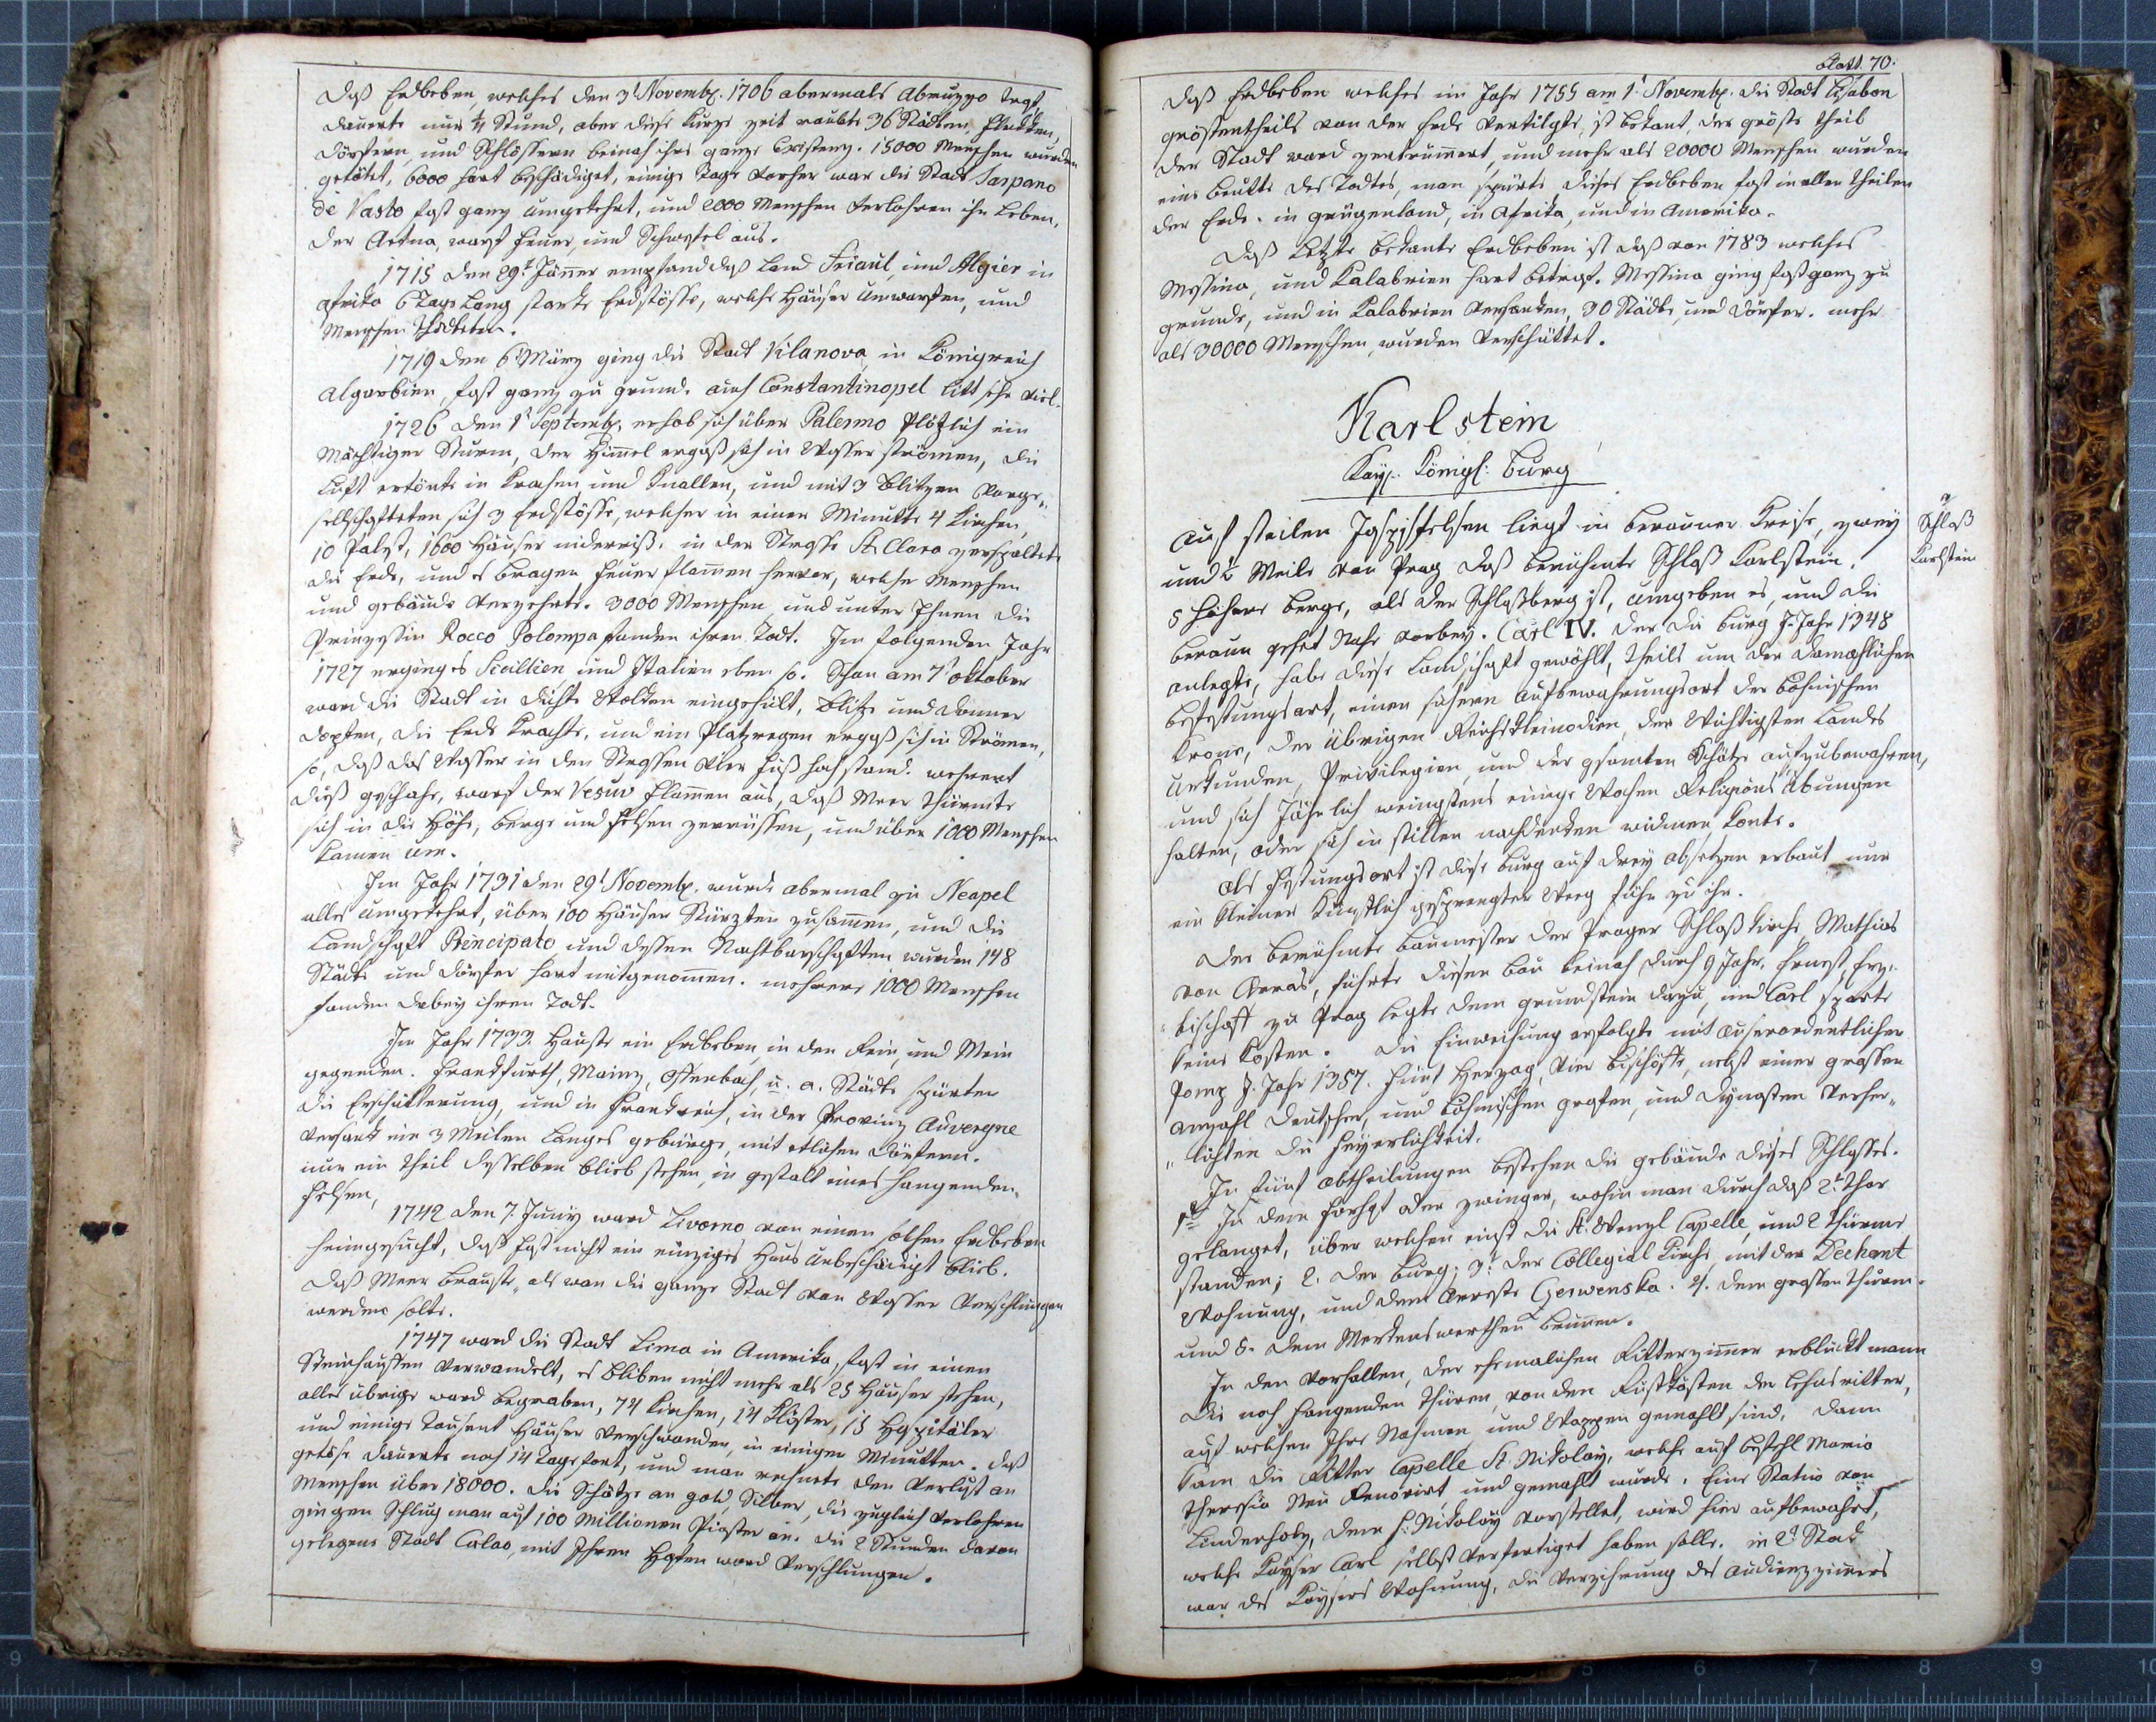 Daß Erdbeben, welches den 3t Novemb. 1706 abermals Abruzzo traf,
dauerte nur ¼ Stund, aber diese kurze zeit raubte 36 Städten, Flecken,
Dörfern, und Schlössern beinah ihre ganze Existenz. 15000 Menschen wurden
getötet, 6000 hart beschädiget, einige Tage vorher war die Stadt Jaspano
de Vasto fast ganz umgekehrt, und 2000 Menschen verlohren ihr Leben,
der Aetna, warf Feuer, und Schwefel aus.
1715 den 29t Jänner empfand daß Land Friaul, und Algier in
Afrika 6 Tage lang starke Erdstösse, welche Häuser umwarfen, und
Menschen thödteten.
1719 den 6t März ging die Stadt Vilanova, in Königreich
Algarbien, fast ganz zu grund. auch Constantinopel litt sehr viel.
1726 den 1t Septemb. erhob sich über Palermo plötzlich ein
mächtiger Sturm, der Himel ergoß sich in Wasser strömen, die
Luft ertönte in krachen und knallen, und mit 3 Blitzen verge„
sellschafteten sich 3 Erdstösse, welcher in einer Minutte 4 Kirchen,
10 Paläst, 1600 Häuser niderriß. in der Strasse St Clara zerspaltete
die Erde, und es brazen Feuer flamen hervor, welche Menschen
und gebäude verzehrte. 3000 Menschen und unter Ihnen die
Prinzessin Rocco Polompa fanden ihren Todt. Im folgenden Jahr
1727 erging es Sicillien, und Italien eben so. Schon am 7t oktober
ward die Stadt in dichte Wolken eingehült, Blitze und Donner
die Erde krachte, und ein Platzregen ergoß sich in Strömen,
so, daß das Wasser in den Strassen vier Fuß hoch stand. während
dieß geschahe, warf der Vesuv Flamen aus, daß Meer thürmte
sich in die Höhe, berge und Felsen zerrissen, und über 1000 Menschen
kamen um.
Im Jahr 1731 den 29t Novemb. wurde abermal zu Neapel
alles umgekehrt, über 100 Häuser stürzten zusamen, und die
Landschaft Principato und dessen Nachtbarschaften wurden 148
Städte und Dörfer hart mitgenomen. mehrere 1000 Menschen
fanden dabey ihren Todt.
Im Jahr 1733. hauste ein Erdbeben, in den Rein, und Mein
gegenden. Frankfurth, Mainz, Offenbach, u. a. Städte spürten
die Erschütterung, und in Frankreich, in der Provinz Auvergne
versank ein 3 Meilen langes gebürge, mit etlichen Dörfern.
nur ein theil desselben blieb stehen, in gestalt eines hangenden
Felsen,
1742 den 7. Juny ward Livorno von einen solchen Erdbeben
heimgesucht, daß fast nicht ein einziges Haus unbeschädigt blieb.
Daß Meer brauste, als wan die ganze Stadt von Wasser verschlungen
werden solte.
1747 ward die Stadt Lima in Amerika, fast in einen
Steinhauffen verwandelt, es bliben nicht mehr als 25 Häuser stehen,
alles übrige ward begraben, 74 Kirchen, 14 Klöster, 15 Hospitäler
und einige Tausent Häuser verschwanden, in einigen Minutten. Daß
getöse dauerte noch 14 Tage fort, und man rechnete den Verlust an
Menschen über 18000. Die Schätze an gold, Silber, die zugleich verlohren
gingen schlug man auf 100 Millionen Piaster an. Die 2 Stunden davon
gelegene Stadt Calao, mit Ihren Hafen ward verschlungen.
blatt. 70.
Daß Erdbeben welches im Jahr 1755 am 1t Novemb. die Stadt Lisabon
gröstentheils von der Erde vertilgte, ist bekant, der gröste theil
der Stadt ward zertrümmert, und mehr als 20000 Menschen wurden
eine beutte des Todtes, man spürte dieses Erdbeben fast in allen theilen
der Erde. in grügenland, in Afrika, und in Amerika.
Daß letzte bekante Erdbeben ist daß von 1783 welches
Messina, und Kalabrien hart betraf. Messina ging fast ganz zu
grunde, und in Kalabrien versanken, 30 Städte, und Dörfer. mehr
als 30000 Menschen, wurden verschüttet.
Karlstein
Kay. Königl: burg
Auf steilen Jaspisfelsen liegt in berauner Kreise, zwey
und ½ Meile von Prag daß berühmte Schloß Karlstein.
Schloß
Karlstein
5 höhere berge, als der Schloßberg ist, umgeben es, und die
beraun gehet nahe vorbey. Carl IV. der die burg J. Jahr 1348
anlegte, habe diese Landschaft gewöhlt, theils um der damahlichen
befestungsart, einen sichern aufbewahrungsort der böhmischen
Krone, der übrigen Reichskleinodien, der wichtigsten Landes
Urkunden, Privilegien, und der gsamten Schätze aufzubewahren,
und sich Jährlich wenigstens einige Wochen Religions Übungen
halten, oder sich in stillen nachdenken widmen konte.
Als Festungsort ist diese burg auf drey absetzen erbaut nur
ein kleiner künstlich gesprengter Weeg führ zu ihr.
Der berühmte baumeister der Prager Schloß kirche Mathias
von Arras, führte diesen bau beinah durch 9 Jahr. Ernest, Erz„
„bischoff zu Prag legte dem grundstein dazu, und Carl sparte
keine kosten. Die Einweihung erfolgte mit auserordentlicher
Pomp J. Jahr 1357. Fünf Herzog, vier bischöffe, nebst einer grossen
anzahl deutschen, und böhmischen grafen, und Dynasten verher„
„lichten die Feyerlichkeit.
In fünf abtheilungen bestehen die gebäude dieses Schlosses.
1te In dem Forhof oder zwinger, wohin man durch daß 2te thor
gelanget, über welchen einst die St. Wenzl Capelle, und 2 thürme
standen; 2. der burg; 3t der Collegial kirche, mit der Dechant
Wohnung, und dem Arreste Czerwenska. 4. dem grossen thurm.
und 5. dem merkenswerthen brunen.
In den vorhallen, der ehemalichen Ritterzimer erblickt mann
die noch hangenden thüren, von den Rüstkästen der Lehnsritter,
auf welchen Ihre Nahmen, und Wappen gemahlt sind, dann
kam die Ritter Capelle St. Nikolay, welche auf befehl Maria
Theresia neu Renovirt, und gemahlt wurde. Eine Statue von
Linderholz, dem h: Nikolay vorstellet, wird hier aufbewahrt,
welche Kayser Carl selbst verfertiget haben solle. in 2t Stock
war des Kaysers Wohnung, die verzihrung des audienzzimers